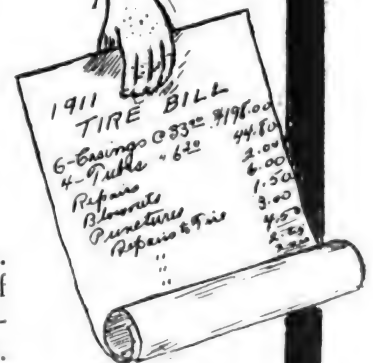 1911
TIRE BILL
6-Casings @ 33.00 $198.00
4-Tubes " 6.20 44.80
Repairs 2.00
Blowouts 6.00
Punctures 1.50
Repairs to Tire 3.00
" 4.50
"
f